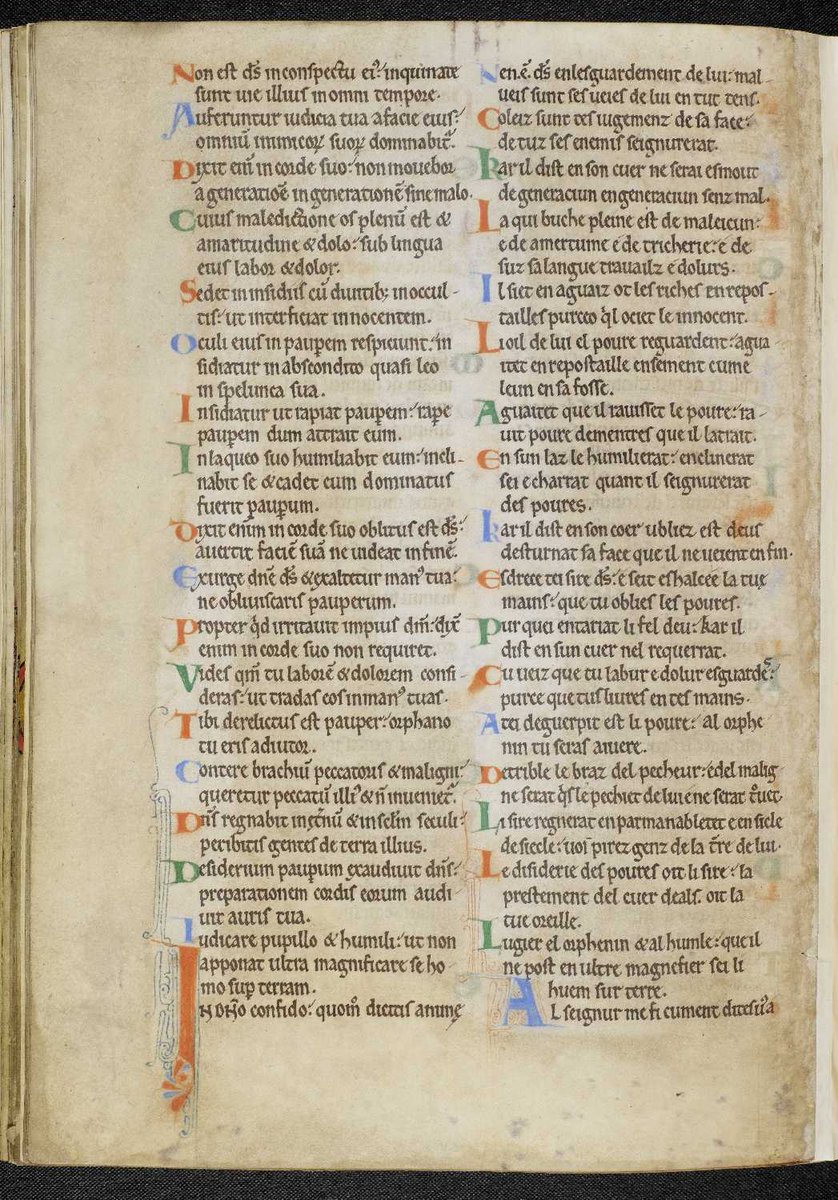 Non est d̄s in conspectu ei᷒: inquinate
sunt uie illius in omni tempore.
Auferuntur iudicia tua a facie eius:
omniū inimicoꝝ suoꝝ dominabit᷑.
Dixit eni᷑ in corde suo: non mouebor
a generatiōe in generationē sine malo.
Cuius maledictione os plenū est &
amaritudine & dolo: sub lingua
eius labor & dolor.
Sedet in insidiis cū diuitib; in occul-
tis: ut interficiat innocentem.
Oculi eius in pauꝑem respiciunt: in
sidiatur in abscondito quasi leo
in spelunca sua.
Insidiatur ut rapiat pauꝑem: raꝑe
pauꝑem dum attrait eum.
In laqueo suo humiliabit eum: incli-
nabit se & cadet cum dominatus
fuerit pauꝑum.
Dixit enim in corde suo oblitus est d̄s:
auertit faciē suā ne uideat in finē.
Exurge dn̄e d̄s & exaltetur man᷒ tua:
ne obliuiscaris pauperum.
Propter qd̄ irritauit impius dm̄: dix̄
enim in corde suo non requiret.
Vides qm̄ tu laborē & dolorem consi-
deras: ut tradas eos in man᷒ tuas.
Tibi derelictus est pauper: orphano
tu eris adiutor.
Contere brachiū peccatoris & maligni:
queretur peccatū illi᷒ & n̄ inueniet᷑.
Dn̄s regnabit in et᷑nū & in sc̄lm seculi:
peribitis gentes de terra illius.
Desiderium pauꝑum exaudiuit dn̄s:
preparationem cordis eorum audi-
uit auris tua.
Iudicare pupillo & humili: ut non
apponat ultra magnificare se ho-
mo suꝑ terram.
IN DN̄O confido: quom̄ dicitis anime
Nen.ē. d̄s en lesguardement de lui: mal-
ueis sunt ses ueies de lui en tut tens.
Coleiz sunt tes iugemenz de sa face:
de tuz ses enemis seignurerat.
Kar il dist en son cuer ne serai esmout
de generaciun en generaciun senz mal.
La qui buche pleine est de maleicun:
e de amertume e de tricherie: e de
suz sa langue trauailz e dolurs.
Il siet en aguaiz ot les riches en repos-
tailles purceo q̄l ociet le innocent.
Li oil de lui el poure reguardent: agua-
itet en repostaille ensement cume
leun en sa fosse.
Aguaitet que il rauisset le poure: ra-
uit poure dementres que il latrait.
En sun laz le humilierat: enclinerat
sei e charrat quant il seignurerat
des poures.
Kar il dist en son coer ubliez est deus
desturnat sa face que il ne ueient en fin.
Esdrece tei sire d̄s: e seit eshalcee la tue
mains: que tu oblies les poures.
Pur quei entariat li fel deu: kar il
dist en sun cuer nel requerrat.
Tu ueiz que tu labur e dolur esguardes:
purce que tus liures en tes mains.
A tei deguerpit est li poure: al orphe
nin tu seras aiuere.
Detrible le braz del pecheur: e del malig-
ne serat q̄s le pechiet de lui e ne serat t᷑uet.
Li sire regnerat en parmanabletet e en siecle
de siecle: uos pirez genz de la t̄re de lui.
Le disiderie des poures oit li sire: la
prestement del cuer deals. oit la
tue oreille.
Lugier el orphenin & al humle: que il
ne post en ultre magnefier sei li
huem sur terre.
AL seignur me fi cument dites a